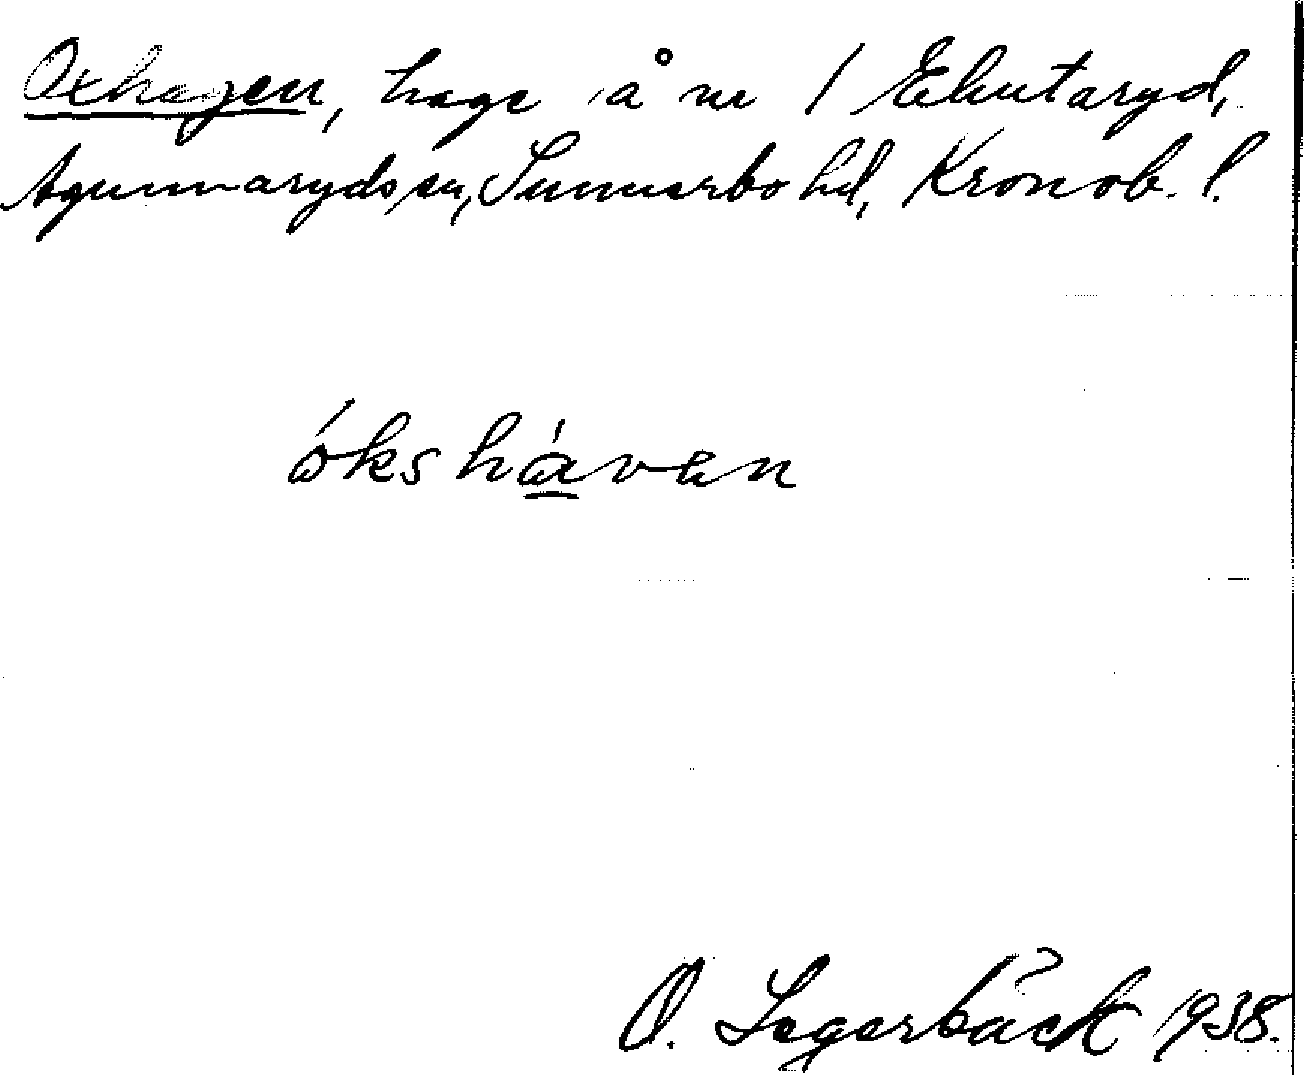 Oxhagen, hage å nr 1 Ekutaryd,
Agunnaryds sn, Sunnerbo hd, Kronob. l.
ókshávan
O. Segerbäck 1938.